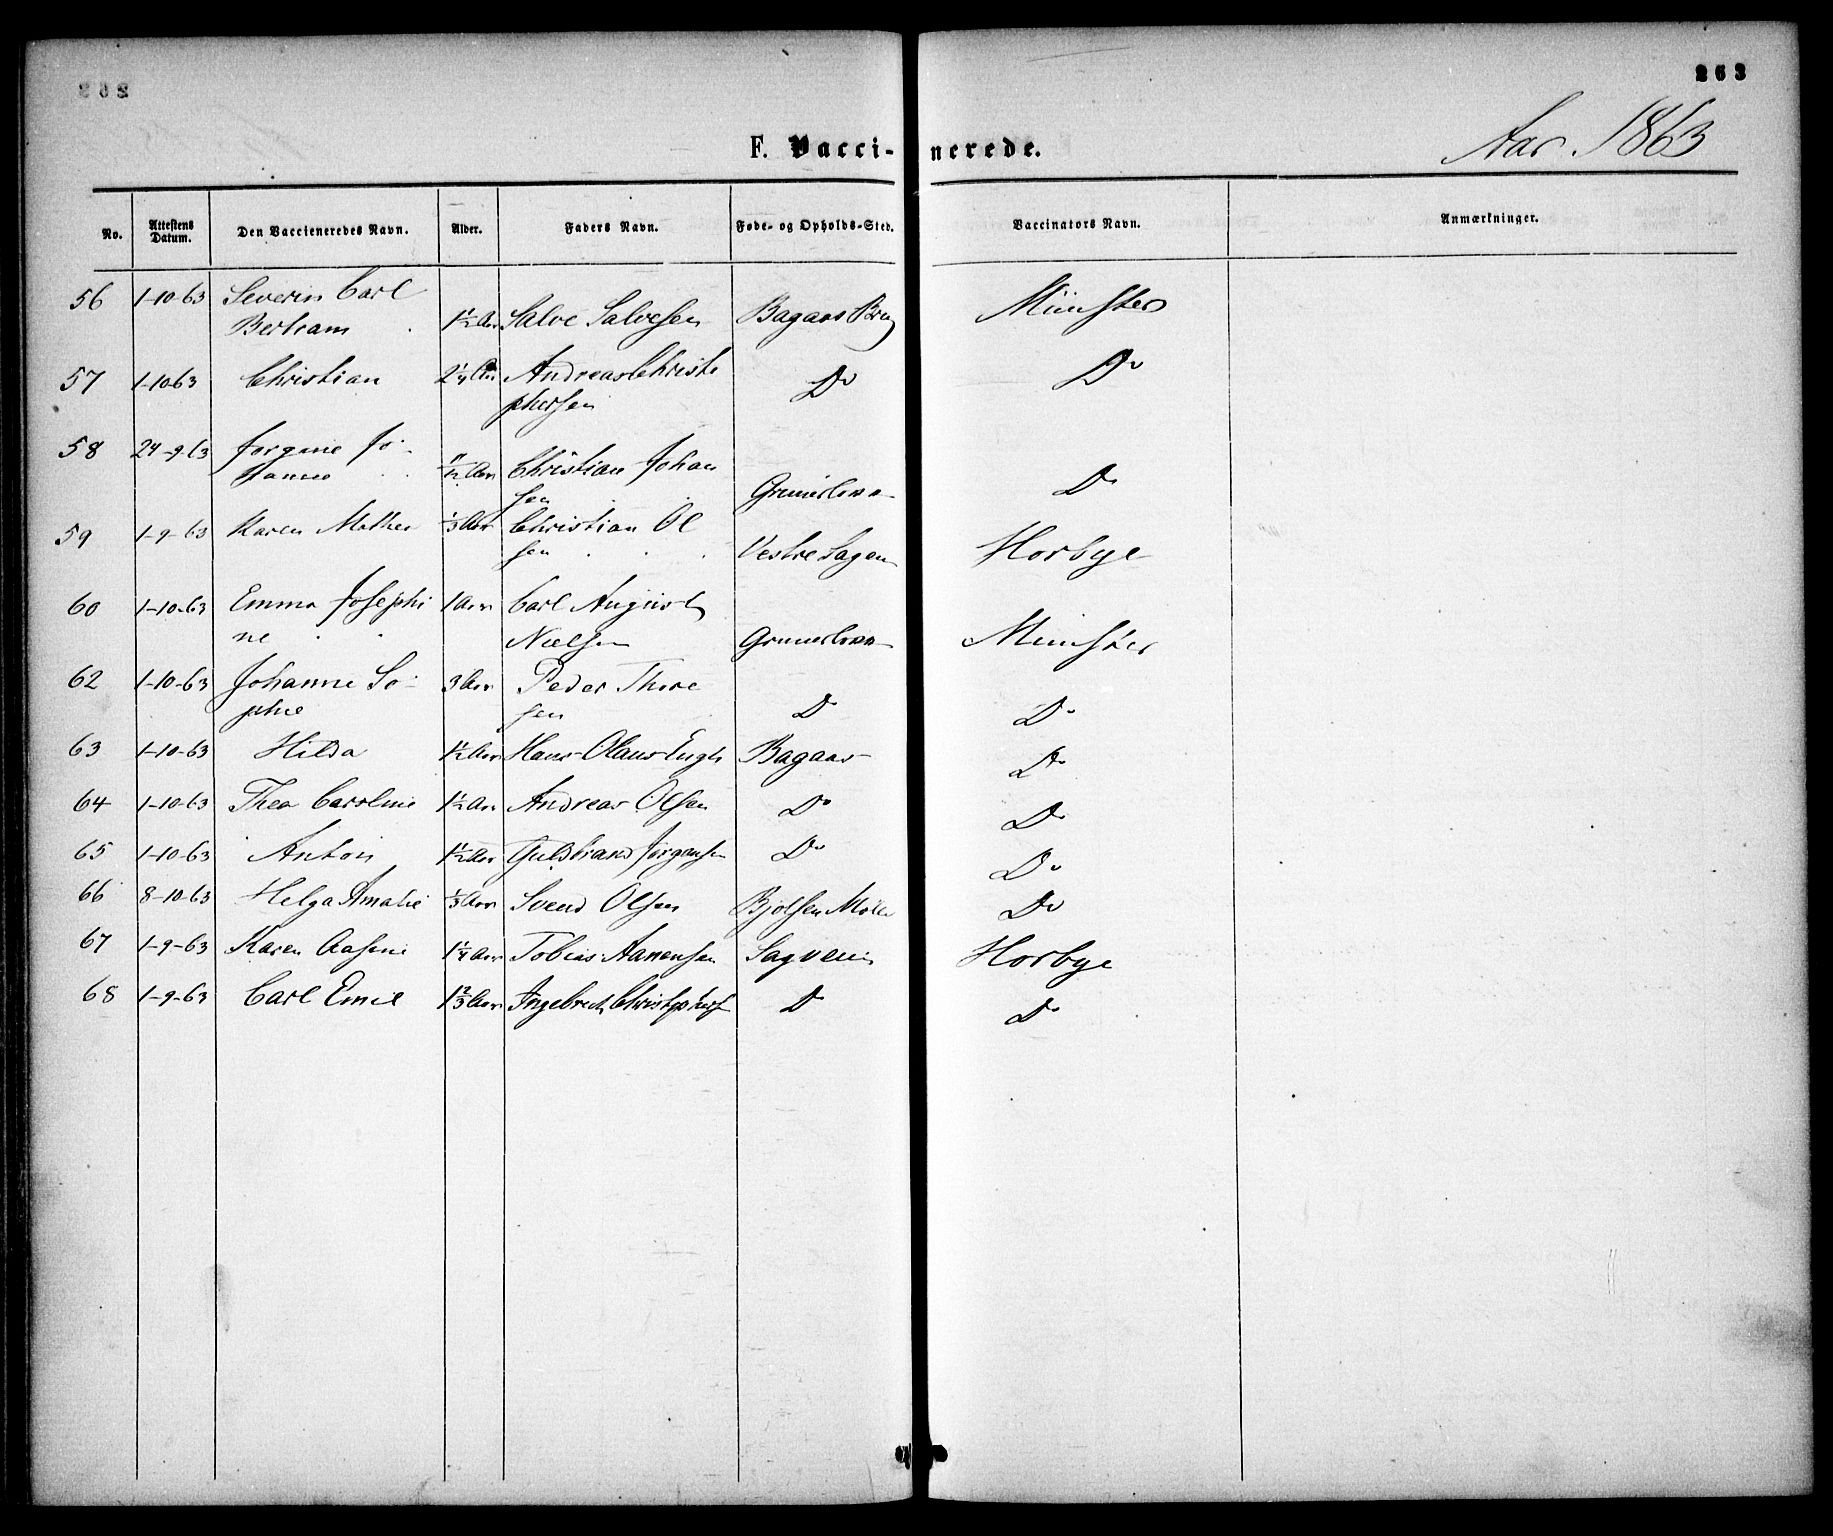 263
F. Vaccinerede.
Aar 1863
No. Attestens Datum. Den Vaccieneredes Navn. Alder. Faders Navn. Føde- og Opholds-Sted. Vaccinators Navn. Anmærkninger.
56 1-10-63 Severin Carl
Bertram 1½ Aar Salve Salvesen Bagaas Brug Münster
57 1-10-63 Christian 2¼ Aar Andreas Christo
phersen Do Do
58 24-9-63 Jorgine Jo-
hanne 11/12 Aar Christian Johan
sen Grünerløkka Do
59 1-9-63 Karen Mathea ⅓ Aar Christian Ol
sen Vestre Sagene Horbye
60 1-10-63 Emma Josephi 1 Aar Carl August
ne Nielsen Grünerløkka Münster
62 1-10-63 Johanne So- 3 Aar Peder Thore
phie sen Do Do
63 1-10-63 Hilda 1½ Aar Hans Olaus Engh Bagaas Do
64 1-10-63 Thea Caroline 1½ Aar Andreas Olsen Do Do
65 1-10-63 Anton 1½ Aar Guldbrand Jørgensen Do Do
66 8-10-63 Helga Amalie ⅓ Aar Svend Olsen Bjølsen Mølle Do
67 1-9-63 Karen Aasine 1¼ Aar Tobias Aanensen Sagvein Horbye
68 1-9-63 Carl Emil 1⅔ Aar Ingebrecht Christophers Do Do